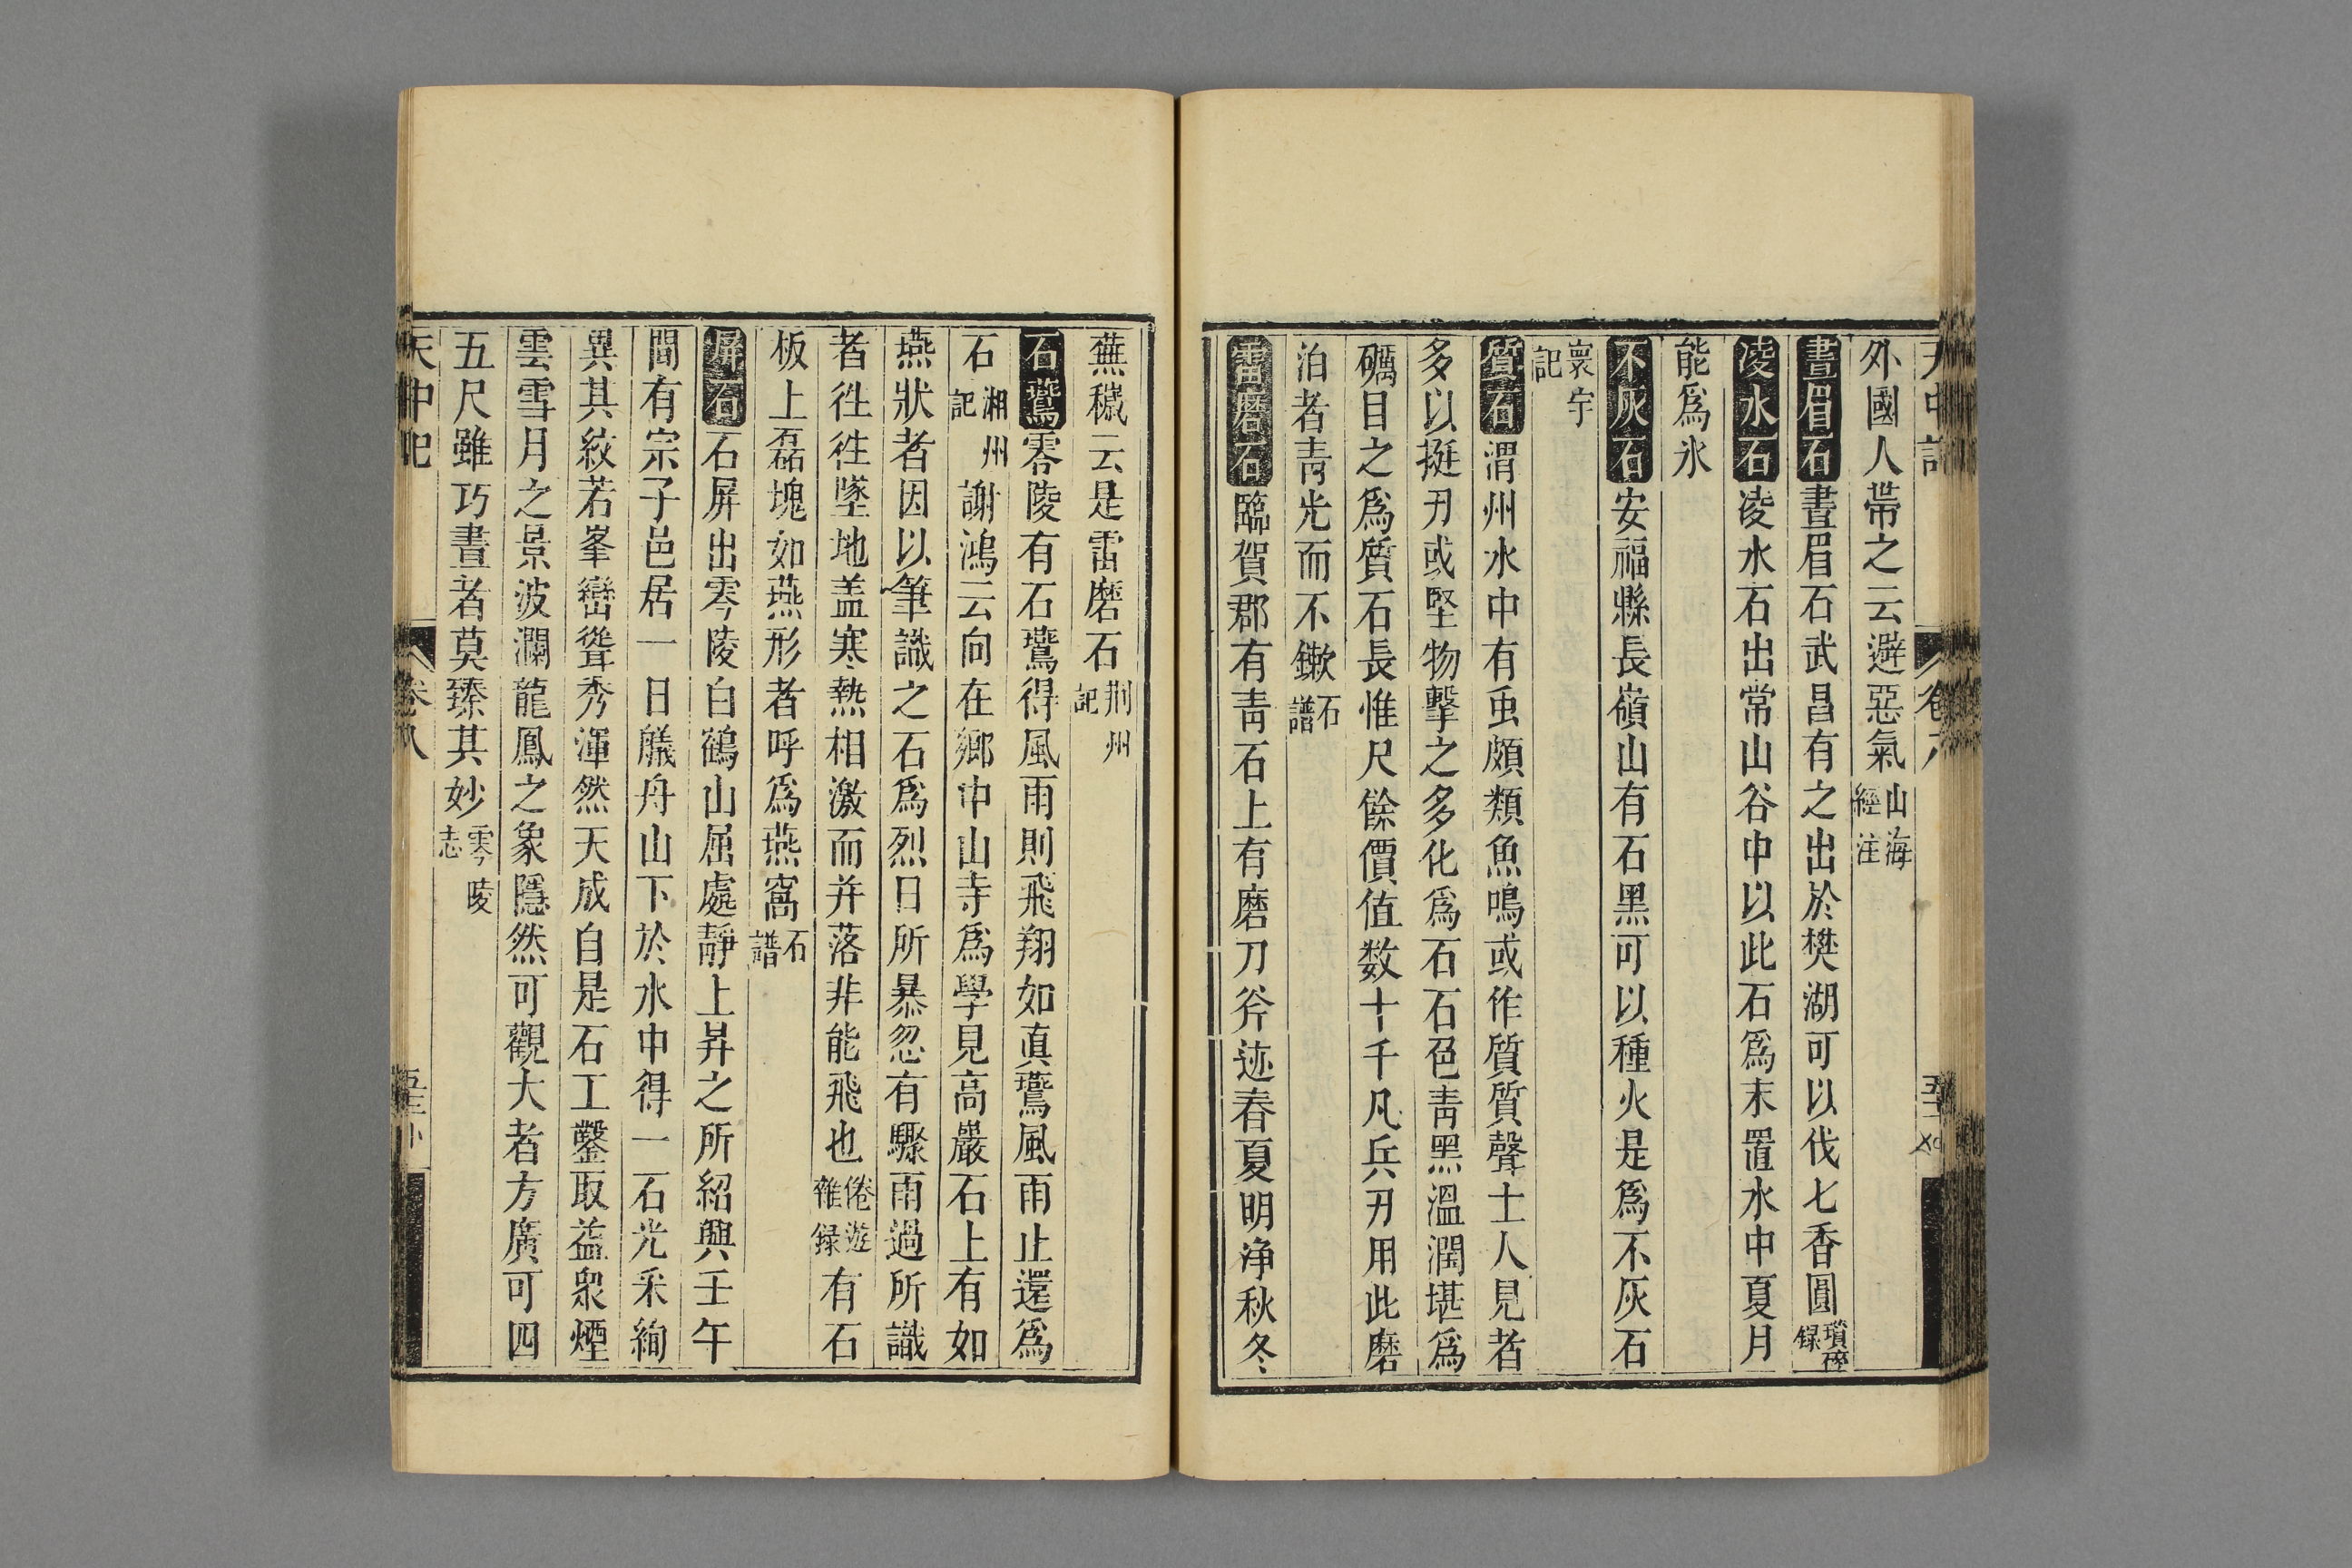 外國人帶之云避惡氣山海經注
畫眉石畫眉石武昌有之出於樊湖可以伐七香圓瑣碎録
凌水石凌水石出常山谷中以此石爲末置水中夏月
能爲氷
不灰石安福縣長嶺山有石黑可以種火是爲不灰石
寰宇記
質石渭州水中有䖝頗類魚鳴或作質質聲士人見者
多以挺刃或堅物擊之多化爲石石色靑黑溫潤堪爲
礪目之爲質石長惟尺餘價值数十千凡兵刃用此磨
泊者靑光而不鏉石譜
雷磨石臨賀郡有靑石上有磨刀斧迹春夏明净秋冬
蕪穢云是雷磨石荆州記
石鷰零陵有石鷰得風雨則飛翔如真鷰風雨止還爲
石湘州記謝鴻云向在鄉中山寺爲學見高巖石上有如
燕狀者因以筆識之石爲烈日所暴忽有驟雨過所識
者徃徃墜地盖寒熱相激而并落非能飛也倦遊雜録有石
板上磊塊如燕形者呼爲燕窩石譜
屏石石屏出零陵白鶴山屈處靜上昇之所紹興壬午
間有宗子邑居一日艤舟山下於水中得一石光采絢
異其紋若峯巒聳秀渾然天成自是石工鑿取益衆煙
雲雪月之景波瀾龍鳳之象隱然可觀大者方廣可四
五尺雖巧畫者莫臻其妙零陵志
天中記 卷八